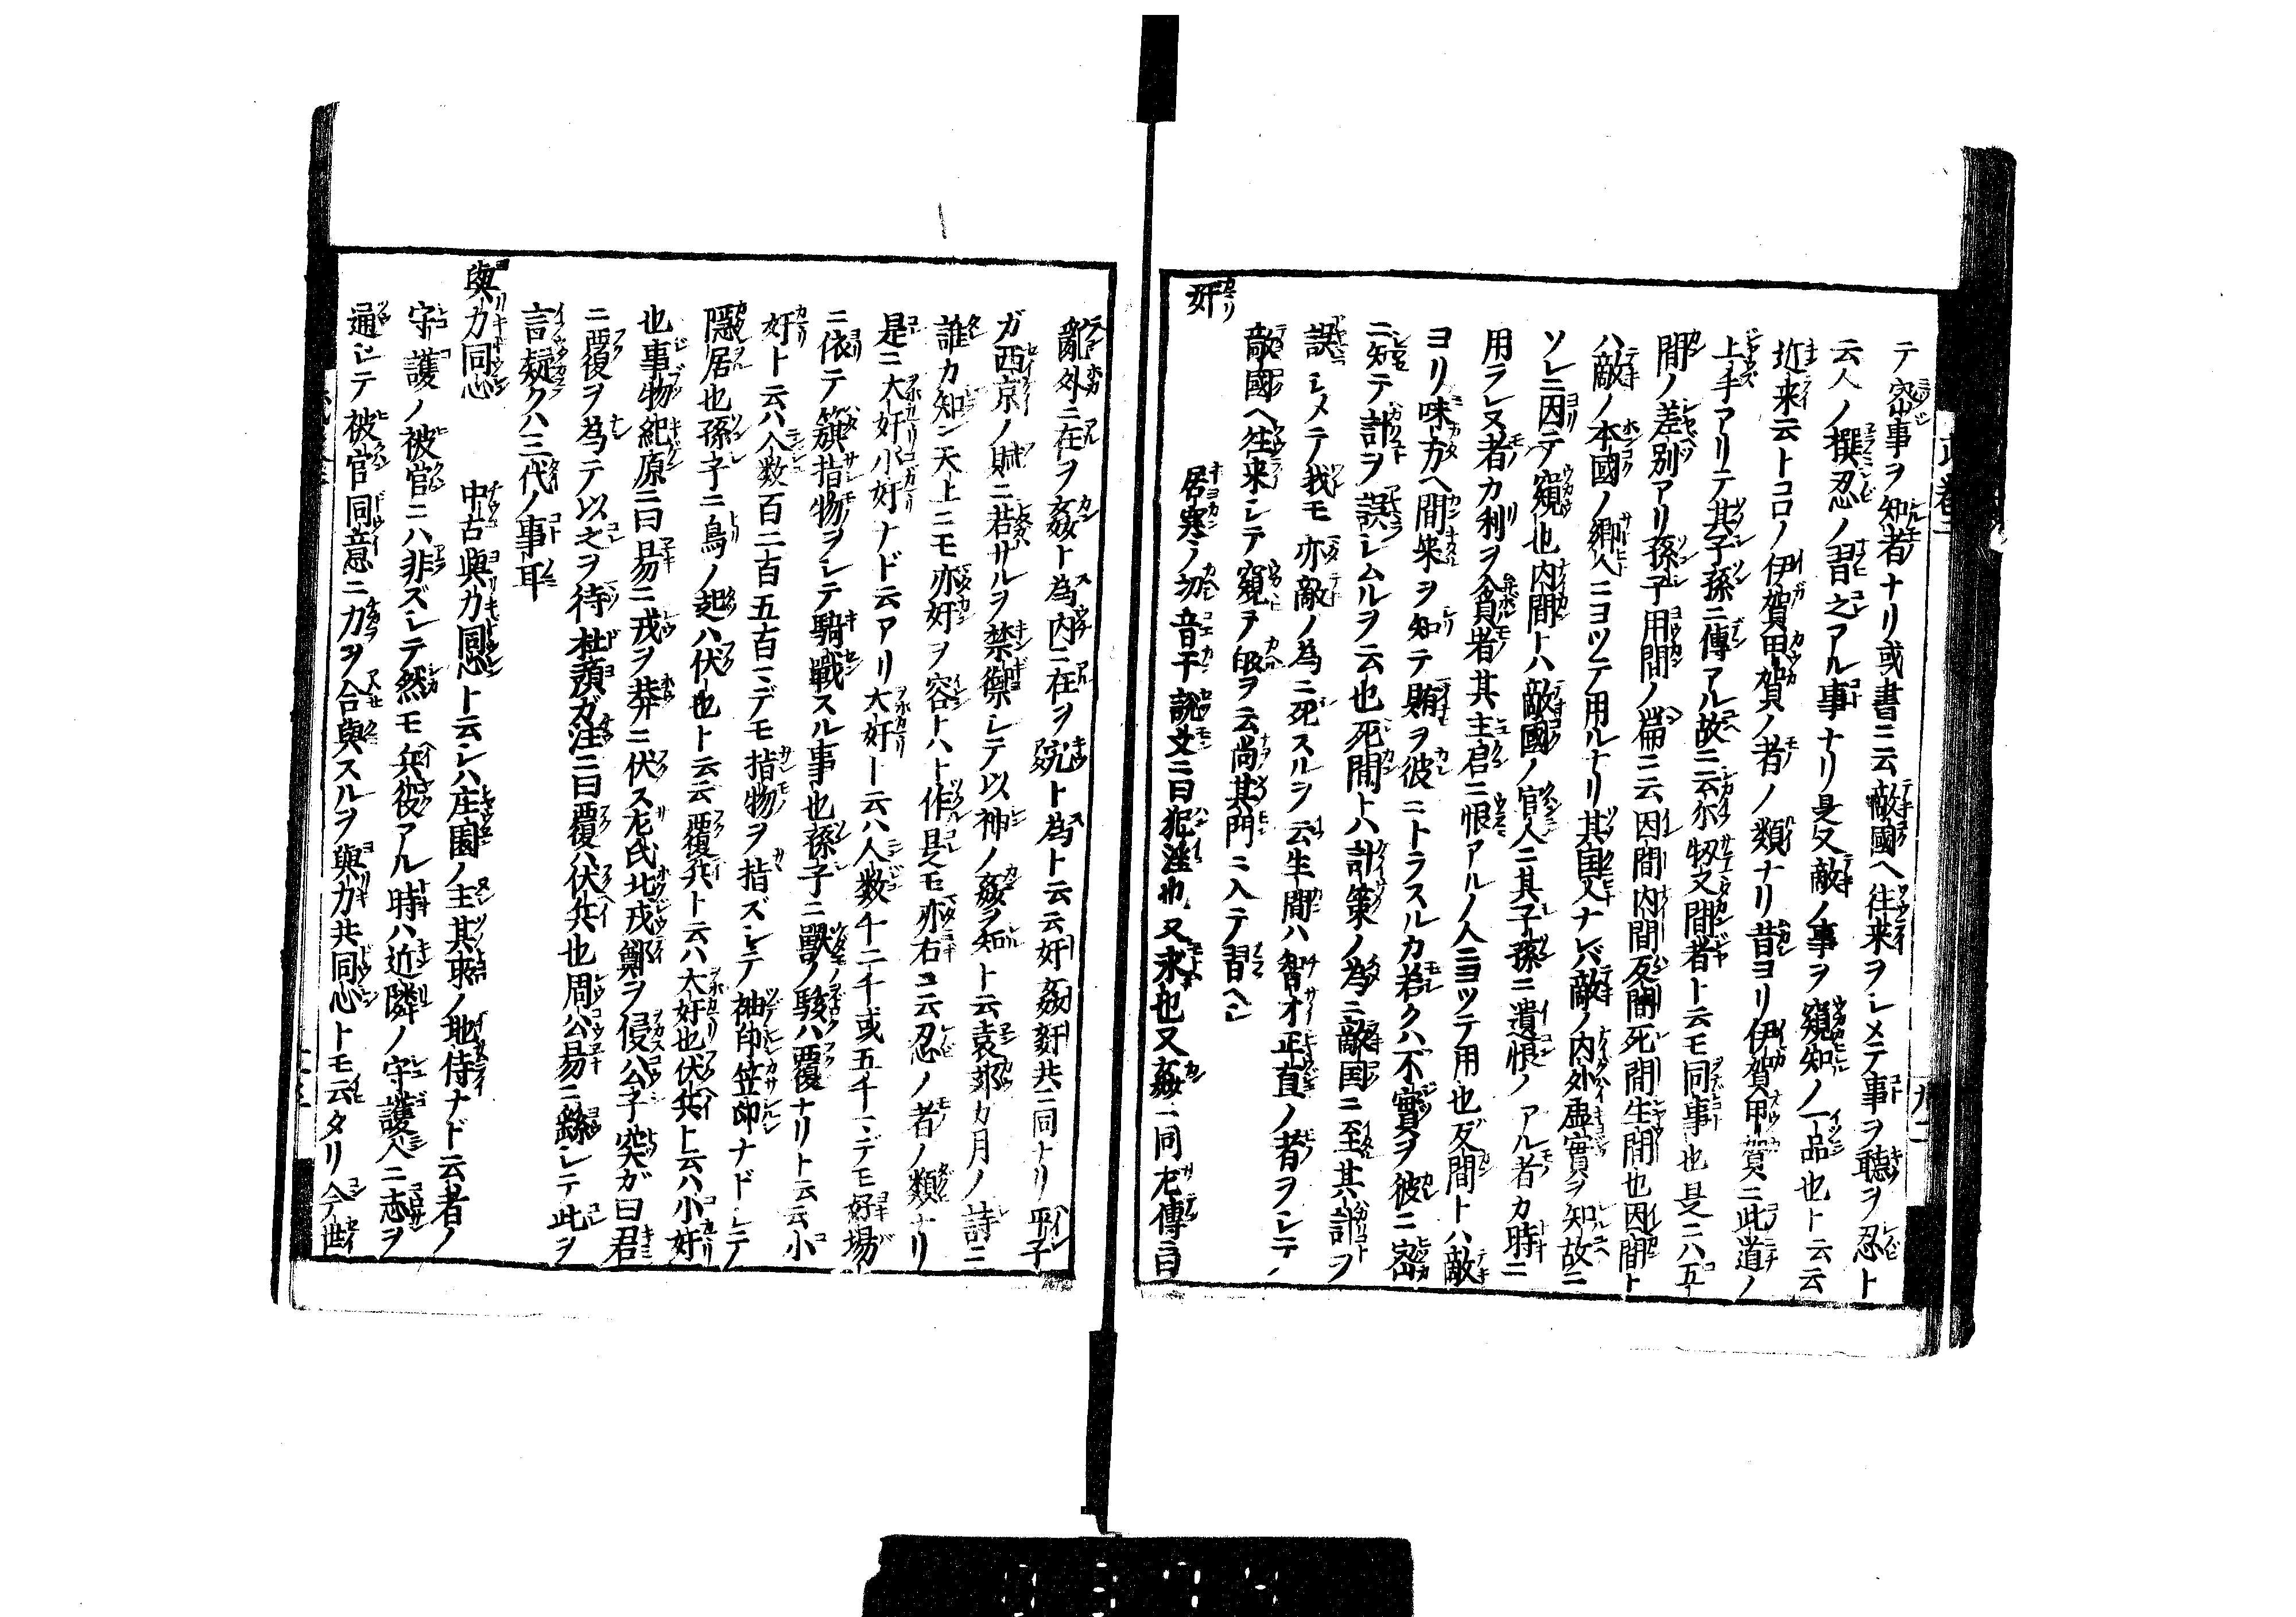 テ密事ヲ知者ナリ或書ニ云敵國ヘ往来ヲシメテ事ヲ聽ヲ忍ト
云人ノ撰忍ノ習之アル事ナリ是又敵ノ事ヲ窺知ノ一品也ト云云
近来云トコロノ伊賀甲賀ノ者ノ類ナリ昔ヨリ伊賀甲賀ニ此道ノ
上手アリテ其子孫ニ傳アル故ニ云尓物又間者ト云モ同事也是ニハ五
間ノ差別アリ孫子用間ノ篇ニ云因間内間反間死間生間也因間ト
ハ敵ノ本國ノ郷人ニヨツテ用ルナリ其国人ナレバ敵ノ内外虚實ヲ知故ニ
ソレニ因テ窺也内間トハ敵國ノ官人ニ其子孫ニ遺恨ノアル者カ時ニ
用ラレ又者カ利ヲ貪者其主君ニ恨アルノ人ニヨツテ用也反間トハ敵
ヨリ味方ヘ間来ヲ知テ賄ヲ彼ニトラスルカ若クハ不實ヲ彼ニ密
ニ知テ計ヲ誤シムルヲ云也死間トハ計策ノ為ニ敵国ニ至其計ヲ
誤シメテ我モ亦敵ノ為ニ死スルヲ云生間ハ智才正直ノ者ヲシテ
敵國ヘ往来シテ窺ヲ皈ヲ云尚其門ニ入テ習ヘシ
奸 居寒ノ切音干説文ニ曰犯淫也又求也又姦ニ同左傳ニ曰
亂外ニ在ヲ姦ト為内ニ在ヲ宄ト為ト云云奸姦姧共ニ同ナリ平子
ガ西京ノ賦ニ若サルヲ禁禦シテ以神ノ姦ヲ知ト云袁郊カ月ノ詩ニ
誰カ知ン天上ニモ亦奸ヲ容トハト作是モ亦右ニ云忍ノ者ノ類ナリ
是ニ大奸小奸ナド云アリ大奸ト云ハ人数千二千或五千ニデモ好場
ニ依テ籏指物ヲシテ騎戰スル事也孫子ニ獸ノ駭ハ覆ナリト云云小
奸ト云ハ人数百二百五百ニデモ指物ヲ指ズシテ袖印笠印ナドシテ
隠居也孫子ニ鳥ノ起ハ伏也ト云云覆兵ト云ハ大奸也伏兵ト云ハ小奸
也事物紀原ニ曰易ニ戎ヲ莽ニ伏ス左氏北戎鄭ヲ侵公子突ガ曰君
ニ覆ヲ為テ以之ヲ待杜預ガ注ニ曰覆ハ伏兵也周公易ニ繇シテ此ヲ
言疑クハ三代ノ事耳
與力同心 中古與力同心ト云シハ庄園ノ主其取ノ地侍ナド云者ノ
守護ノ被官ニハ非ズシテ然モ兵役アル時ハ近隣ノ守護人ニ志ヲ
通シテ被官同意ニ力ヲ合與スルヲ與力共同心トモ云タリ今世